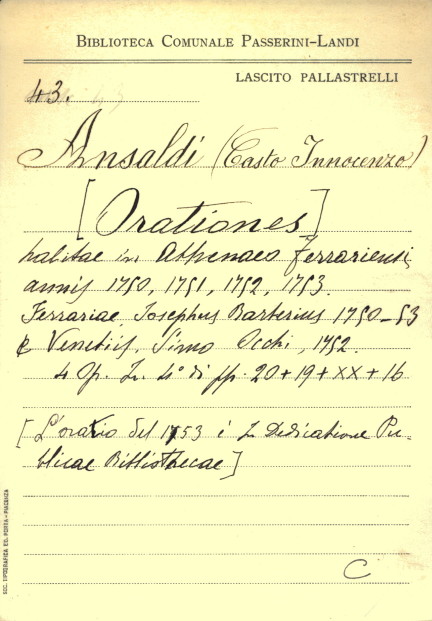 BIBLIOTECA COMUNALE PASSERINI-LANDI
LASCITO PALLASTRELLI
43.
Ansaldi (Casto Innocenzo)
[Orationes]
habitae in Athenaeo Ferrariensi
annis 1750, 1751, 1752, 1753.
Ferrariae, Josephus Barberius 1750-53
e Venetiis, Simo Occhi, 1752.
4 Op. In 4° di pp. 20+19+XX+16
[L'oratio del 1753 è In Dedicatione Pu-
blicae Bibliothecae]
C
SOC. TIPOGRAFICA ED. PORTA - PIACENZA